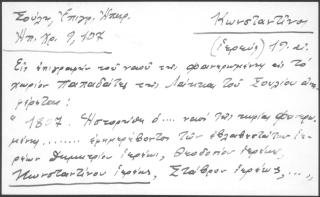 Σούλη, Ἐπιγρ. Ἠπειρ.
Κωνσταντῖνο
Ἠπ. Χρ. 9, 107
(ἱερεύς) 19. αἰ.
Εἰς ἐπιγραφὴν τοῦ ναοῦ τῆς φανερωμένης εἰς τὸ
χωρίον Παπαδάτες τῆς Λάκκας τοῦ Σουλίου
" 1807. Ἱστορήθη ὁ .... ναὸς τῆς κυρίας φανερω
μένης ........ ἐφημερεύοντος τῶν εὐλαβεστάτων ἱε
ρέων Δημητρίου ἱερέως, Θεοδοσίου ἱερέως,
Κωνσταντίνου ἱερέως, Σταύρου ἱερέως, ... "